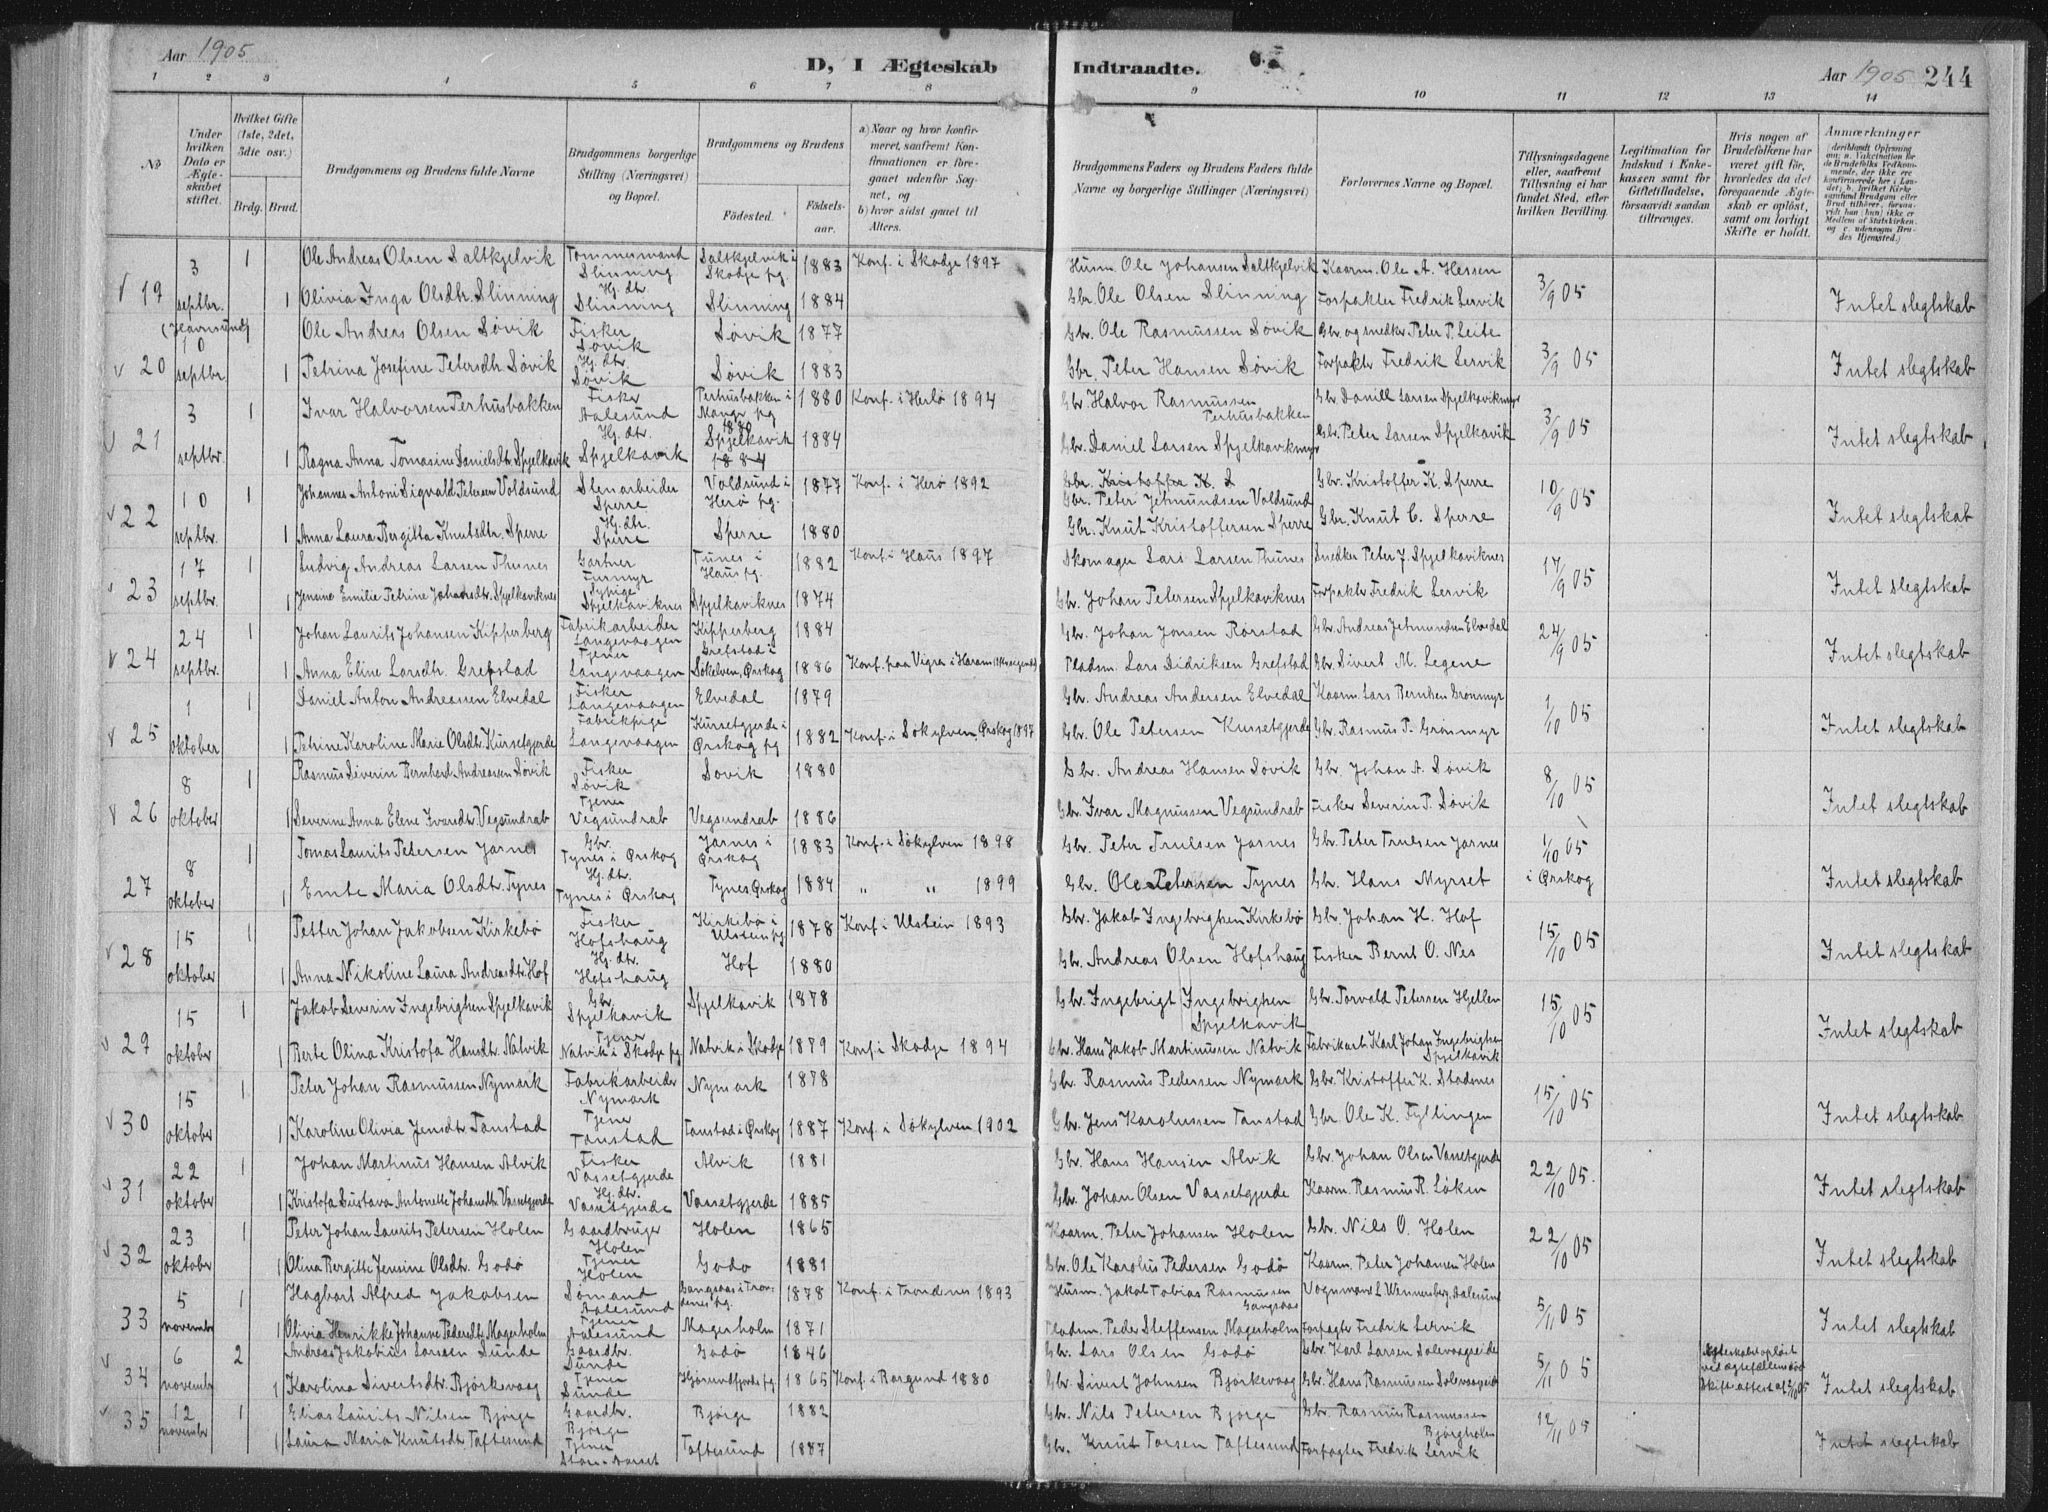 Aar 1905
D, I Ægteskab Indtraadte.
Aar 1905 244
1 2 3 4 5 6 7 8 9 10 11 12 13 14
No
Under hvilken Dato er Ægteskabet stiftet.
Hvilket Gifte (1ste, 2det, 3die osv.)
Brdg. Brud.
Brudgommens og Brudens fulde Navne
Brudgommens borgerlige Stilling (Næringsvei) og Bopæl.
Brudgommens og Brudens
Fødested.
Fødselsaar.
a) Naar og hvor konfirmeret, saafremt Konfirmationen er foregaaet udenfor Sognet, og
b) hvor sidst gaaet til Alters.
Brudgommens Faders og Brudens Faders fulde Navne og borgerlige Stillinger (Næringsvei)
Forlovernes Navne og Bopæl.
Tillysningsdagene eller, saafremt Tillysning ei har fundet Sted, efter hvilken Bevilling.
Legitimation for Indskud i Enkekassen samt for Giftetilladelse, forsaavidt saadan tiltrænges.
Hvis nogen af Brudefolkene har været gift før, hvorledes da det foregaaende Ægteskab er opløst, samt om lovligt Skifte er holdt.
Anmærkninger (deriblandt Oplysning om: a. Vakcination for de Brudefolks Vedkommende, der ikke ere konfirmerede her i Landet; b. hvilket Kirkesamfund Brudgom eller Brud tilhører, forsaavidt han (hun) ikke er Medlem af Statskirken, og c. udensogns Brudes Hjemsted.)
19 3 septbr. 1 Ole Andreas Olsen Saltkjelvik Tømmermand Slinning Saltkjelvik i Skodje pg. 1883 Konf. i Skodje 1897 Husm. Ole Johansen Saltkjelvik Kaarm. Ole A. Hessen 3/9 05
1 Olivia Inga Olsdtr. Slinning Hj. dtr. Slinning Slinning 1884 Gbr. Ole Olsen Slinning Forpakter Fredrik Lervik Intet slegtskab
20 (Havnsund) 10 septbr. Ole Andreas Olsen Søvik Fisker Søvik Søvik 1877 Gbr. Ole Rasmussen Søvik Gbr og snedkr. Peter P. Leite 3/9 05
1 Petrina Josefine Petersdtr. Søvik Hj. dtr. Søvik Søvik 1883 Gbr. Peter Hansen Søvik Forpakter Fredrik Lervik Intet slegtskab
21 3 septbr. 1 Ivar Halvorsen Perhusbakken Fisker Aalesund Perhusbakken i Manger pg 1880 1880 Konf. i Herlø 1894 Gbr. Halvor Rasmussen Perhusbakken Gbr. Daniel Larsen Spjelkaviknyr 3/9 05
1 Ragna Anna Tomasine Danielsdtr. Spjelkavik Hj. dtr. Spjelkavik Spjelkavik 1884 1884 Gbr. Daniel Larsen Spjelkaviknyr Gbr. Peter Larsen Spjelkavik Intet slegtskab
22 10 septbr. 1 Johannes Antoni Sigvald Petersen Voldsund Stenarbeider Sperre Voldsund i Herø pg. 1877 Konf. i Herø 1892 Gbr. Kristoffer K. Gbr. Peter Jetmundsen Voldsund Gbr. Kristoffer K. Sperre 10/9 05
1 Anna Laura Bergitta Knutsdtr. Sperre Hj. dtr. Sperre Sperre 1880 Gbr. Knut Kristoffersen Sperre Gbr. Knut C. Sperre Intet slegtskab
23 17 septbr. 1 Ludvig Andreas Larsen Thunes Gartner Furmyr Tunes i Haus pg. 1882 Konf. i Haus 1897 Skomager Lars Larsen Thunes Snedker Peter J. Spjelkaviknes 17/9 05
1 Jensine Emilie Petrine Johansdtr. Spjelkaviknes Sypige Spjelkaviknes Spjelkaviknes 1874 Gbr. Johan Petersen Spjelkaviknes Forpakter Fredrik Lervik Intet slegtskab
24 24 septbr. 1 Johan Laurits Johansen Kipperberg Fabrikarbeider Langevaagen Kipperberg 1884 Gbr. Johan Jonsen Rørstad Gbr. Andreas Jetmundsen Elvedal 24/9 05
1 Anna Eline Larsdtr. Grepstad Tjener Langevaagen Grefstad i Søkelven, Ørskog 1886 Konf. paa Vigra i Haram Pladsm. Lars Didriksen Grefstad Gbr. Sivert M. Legene Intet slegtskab
25 1 oktober 1 Daniel Anton Andreassen Elvedal Fisker Langevaagen Elvedal 1879 Gbr. Andreas Andersen Elvedal Kaarm. Lars Berntsen Grønmyr 1/10 05
1 Petrine Karoline Marie Olsdtr. Kursetgjerde Fabrikpige Langevaagen Kursetgjerde i Ørskog pg 1882 Konf. i Søkylven, Ørskog 1897 Gbr. Ole Petersen Kursetgjerde Gbr. Rasmus P. Grønmyr Intet slegtskab
26 8 oktober 1 Rasmus Severin Bernhard Andreassen Søvik Fisker Søvik Søvik 1880 Gbr. Andreas Hansen Søvik Gbr. Johan A. Søvik 8/10 05
1 Severine Anna Elene Ivarsdtr. Vegsundrab Tjener Vegsundrab Vegsundrab 1886 Gbr. Ivar Magnussen Vegsundrab Fisker Severin P. Søvik Intet slegtskab
27 8 oktober 1 Tomas Laurits Petersen Jarnes Gbr. Tynes i Ørskog Jarnes i Ørskog 1883 Konf. i Søkylven 1898 Gbr. Peter Trulsen Jarnes Gbr. Peter Trulsen Jarnes 1/10 05 i Ørskog
1 Emte Maria Olsdtr. Tynes Hj. dtr. Tynes i Ørskog Tynes Ørskog 1884 " " 1899 Gbr. Ole Petersen Tynes Gbr. Hans Myrset Intet slegtskab
28 15 oktober 1 Petter Johan Jakobsen Kirkebø Fisker Hofshaug Kirkebø i Ulstein pg 1878 Konf. i Ulstein 1893 Gbr. Jakob Ingebrigtsen Kirkebø Gbr. Johan H. Hof 15/10 05
1 Anna Nikoline Laura Andreasdtr. Hof Hj. dtr. Hofshaug Hof 1880 Gbr. Andreas Olsen Hofshaug Fisker Bernt O. Nes Intet slegtskab
29 15 oktober 1 Jakob Severin Ingebrigtsen Spjelkavik Gbr. Spjelkavik Spjelkavik 1878 Gbr. Ingebrigt Ingebrigtsen Spjelkavik Gbr. Torvald Petersen Hjellen 15/10 05
1 Berte Olina Kristofa Hansdtr. Natvik Tjener Natvik i Skodje pg Natvik i Skodje 1879 Konf. i Skodje 1894 Gbr. Hans Jakob Martinussen Natvik Fabrikarb Karl Johan Ingebrigtsen Spjelkavik Intet slegtskab
30 15 oktober 1 Peter Johan Rasmussen Nymark Fabrikarbeider Nymark Nymark 1878 Gbr. Rasmus Pedersen Nymark Gbr. Kristoffer K. Stadsnes 15/10 05
1 Karoline Olivia Jensdtr. Tanstad Tjener Tanstad Tanstad i Ørskog 1887 Konf. i Søkylven 1902 Gbr. Jens Karolussen Tanstad Gbr. Ole K. Fyllingen Intet slegtskab
31 22 oktober 1 Johan Martinus Hansen Alvik Fisker Vassetgjerde Alvik 1881 Gbr. Hans Hansen Alvik Gbr. Johan Olsen Vassetgjerde 22/10 05.
1 Kristofa Gustava Antonette Johansdtr. Vassetgjerde Hj. dtr. Vassetgjerde Vassetgjerde 1885 Gbr. Johan Olsen Vassetgjerde Kaarm. Rasmus R. Løken Intet slegtskab
32 23 oktober 1 Peter Johan Laurits Petersen Holen Gaardbruger Holen Holen 1865 Kaarm. Peter Johansen Holen Gbr. Nils O. Holen 22/10 05
1 Olina Bergitte Jensine Olsdtr. Godø Tjener Holen Godø 1881 Gbr. Ole Karolus Pedersen Godø Kaarm. Peter Johansen Holen Intet slegtskab
33 5 novembr 1 Hagbart Alfred Jakobsen Sømand Aalesund Gangsaas i Trondenes pg. 1878 Konf. i Trondenes 1893 Husm. Jakob Tobias Rasmussen Gangsaas Vognmand L Wennersberg, Aalesund 5/11 05
1 Olivia Henrikke Johanne Pedersdtr. Magerholm Tjener Aalesund Magerholm 1871 Pladsm. Peder Steffensen Magerholm Forpagter Fredrik Lervik Intet slegtskab
34 6 novembr 2 Andreas Jakobius Larssen Sunde Gaardbr. Sunde Godø 1846 Gbr. Lars Olsen Godø Gbr. Karl Larsen Solevaagseide 5/11 05 Egteskabet opløst ved egtefællens død Skifteattest af 2/11 05
1 Karolina Sivertsdtr. Bjørkevaag Tjener Sunde Hjørundfjords pg. 1865 Konf. i Borgund 1880 Gbr. Sivert Johnsen Bjørkevaag Gbr. Hans Rasmussen Solevaagseide Intet slegtskab
35 12 november 1 Elias Laurits Nilsen Bjørge Gaardbr. Bjørge Bjørge 1882 Gbr. Nils Petersen Bjørge Gbr. Rasmus Rasmussen Bjørgholm 12/11 05
1 Laura Maria Knutsdtr Taftesund Tjener Taftesund 1877 Gbr. Knut Tarsen Taftesund Forpagter Fredrik Lervik Intet slegtskab